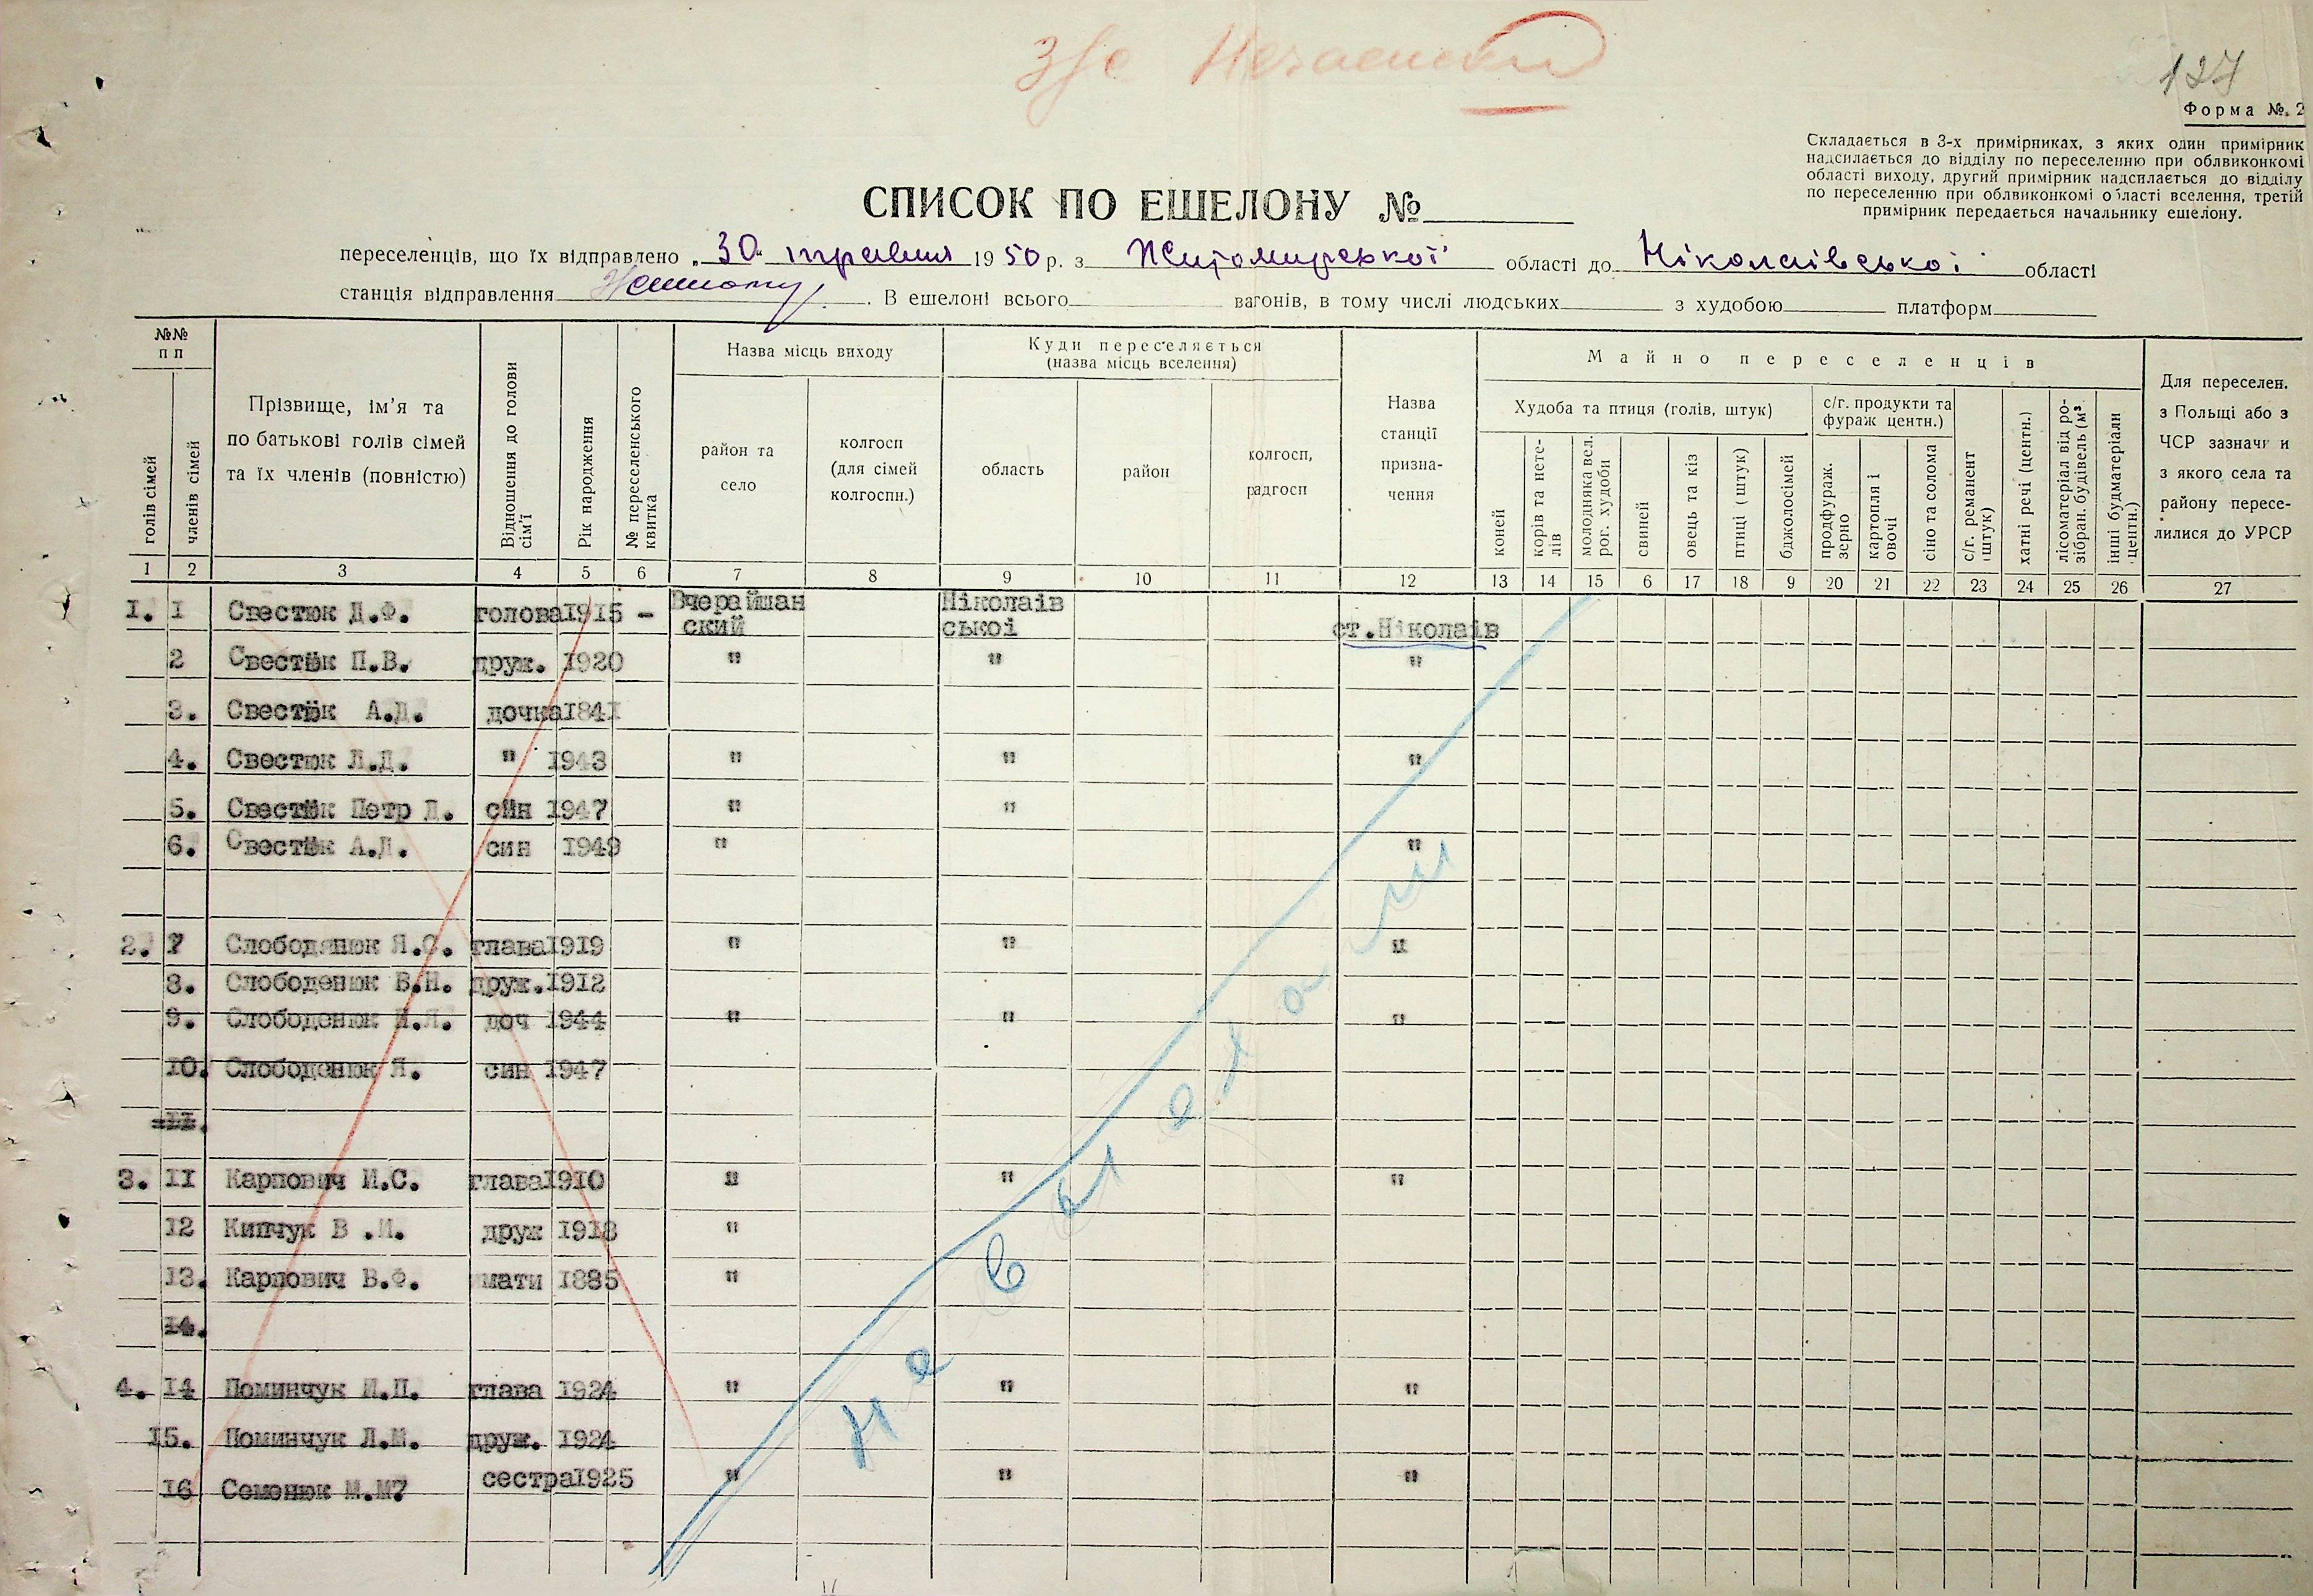 127
Форма №. 2
Складається в 3-х примірниках, з яких один примірник
надсилається до відділу по переселенню при облвиконкомі
області виходу, другий примірник надсилається до відділу
по переселенню при облвиконкомі області вселення, третій
примірник передається начальнику ешелону.
СПИСОК ПО ЕШЕЛОНУ №
переселенців, що їх відправлено „30" травня 1950 р. з Житомирської області до Ніколаівської області
станція відправлення В ешелоні всього вагонів, в тому числі людських з худобою платформ
№№ п п
голів сімей
членів сімей
Прізвище, ім'я та
по батькові голів сімей
та їх членів (повністю)
Відношення до голови сім'ї
Рік народження
№ переселенського квитка
Назва місць виходу
район та село
колгосп (для сімей колгоспн.)
Куди переселяється
(назва місць вселення)
область
район
колгосп, радгосп
Назва станції призна-чення
Майно переселенців
Худоба та птиця (голів, штук)
коней
корів та нете-лів
молодняка вел. рог. худоби
свиней
овець та кіз
птиці (штук)
бджолосімей
с/г. продукти та фураж центн.)
продфураж. зерно
картопля і овочі
сіно та солома
с/г. реманент (штук)
хатні речі (центн.)
лісоматеріал від ро-зібран. будівель (м³
інші будматеріали центн.)
Для переселен.
з Польщі або з
ЧСР зазначи и
з якого села та
району пересе-
лилися до УРСР
1 2 3 4 5 6 7 8 9 10 11 12 13 14 15 6 17 18 9 20 21 22 23 24 25 26 27
1. I Свестюк Д.Ф. голова 1915 – Вчерайшан ский Ніколаів ської ст.Ніколаів
2 Свестюк П.В. друж. 1920 " " "
3. Свестюк А.Д. дочка 1841
4. Свестюк Л.Д. " 1943 " " "
5. Свестюк Петр Д. син 1947 " "
6. Свестюк А.Д. син 1949 " "
2. 7 Слободянюк Я.С. глава 1919 " " "
8. Слободенюк В.Н. друж. 1912
9. Слободенюк Н.Я. доч 1944 " " "
10. Слободенюк Я. син 1947
11.
3. II Карпович И.С. глава 1910 " " "
12 Кипчук В .И. друж 1918 "
13. Карпович В.Ф. мати 1885 "
14.
4. 14 Поминчук И.П. глава 1924 " " "
15. Поминчук Л.М. друж. 1924
16 Семенюк М.М7 сестра 1925 " " "
не виехали